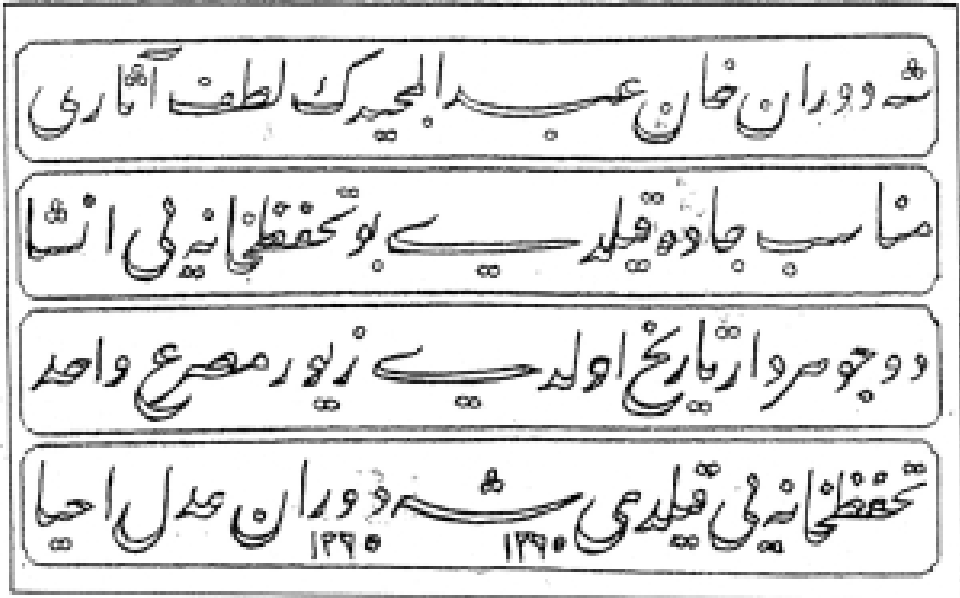 شه دوران خان عبد المجیدك لطف آثاری
مناسب جاده قیلدی بو تحفظخانه نی انشا
دو جوهردار تاریخ اولدی زیور مصرع واحد
تحفظخانه نی قیلدی شه دوران عدل احیا
١٢٦٥ ١٢٦٥